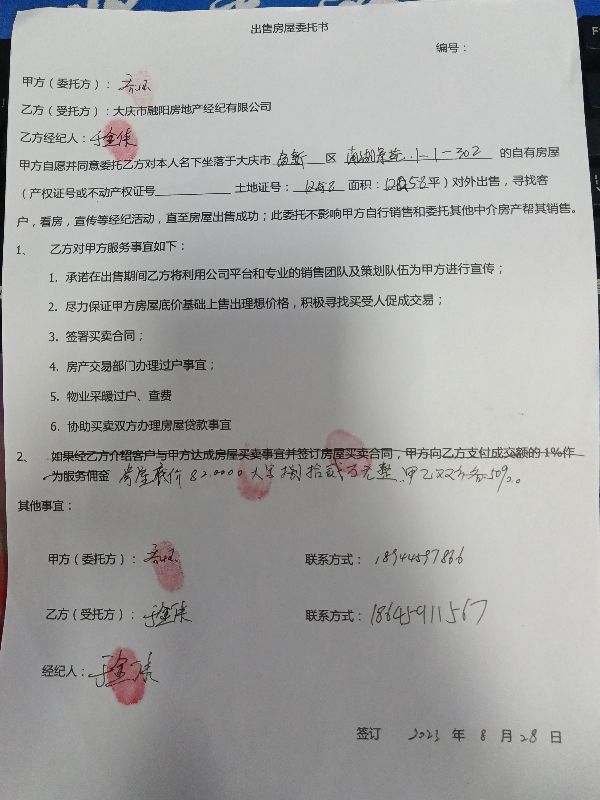 出售房屋委托书
编号：
甲方（委托方）：
乙方（受托方）：大庆市融阳房地产经纪有限公司
乙方经纪人：于金
甲方自愿并同意委托乙方对本人名下坐落于大庆市 高新 区 1-1-302 的自有房屋
（产权证号或不动产权证号 土地证号： 面积： 58平）对外出售，寻找客
户，看房，宣传等经纪活动，直至房屋出售成功；此委托不影响甲方自行销售和委托其他中介房产帮其销售。
1、 乙方对甲方服务事宜如下：
1. 承诺在出售期间乙方将利用公司平台和专业的销售团队及策划队伍为甲方进行宣传；
2. 尽力保证甲方房屋底价基础上售出理想价格，积极寻找买受人促成交易；
3. 签署买卖合同；
4. 房产交易部门办理过户事宜；
5. 物业采暖过户、查费
6. 协助买卖双方办理房屋贷款事宜
2、 如果经乙方介绍客户与甲方达成房屋买卖事宜并签订房屋买卖合同，甲方向乙方支付成交额的1%作
为服务佣金 房屋底价820000大写捌拾贰万元整.甲乙双方各50%.
其他事宜：
甲方（委托方）： 联系方式：18944597866
乙方（受托方）：于金 联系方式：18645911567
经纪人：于金
签订 2023 年 8 月 28 日